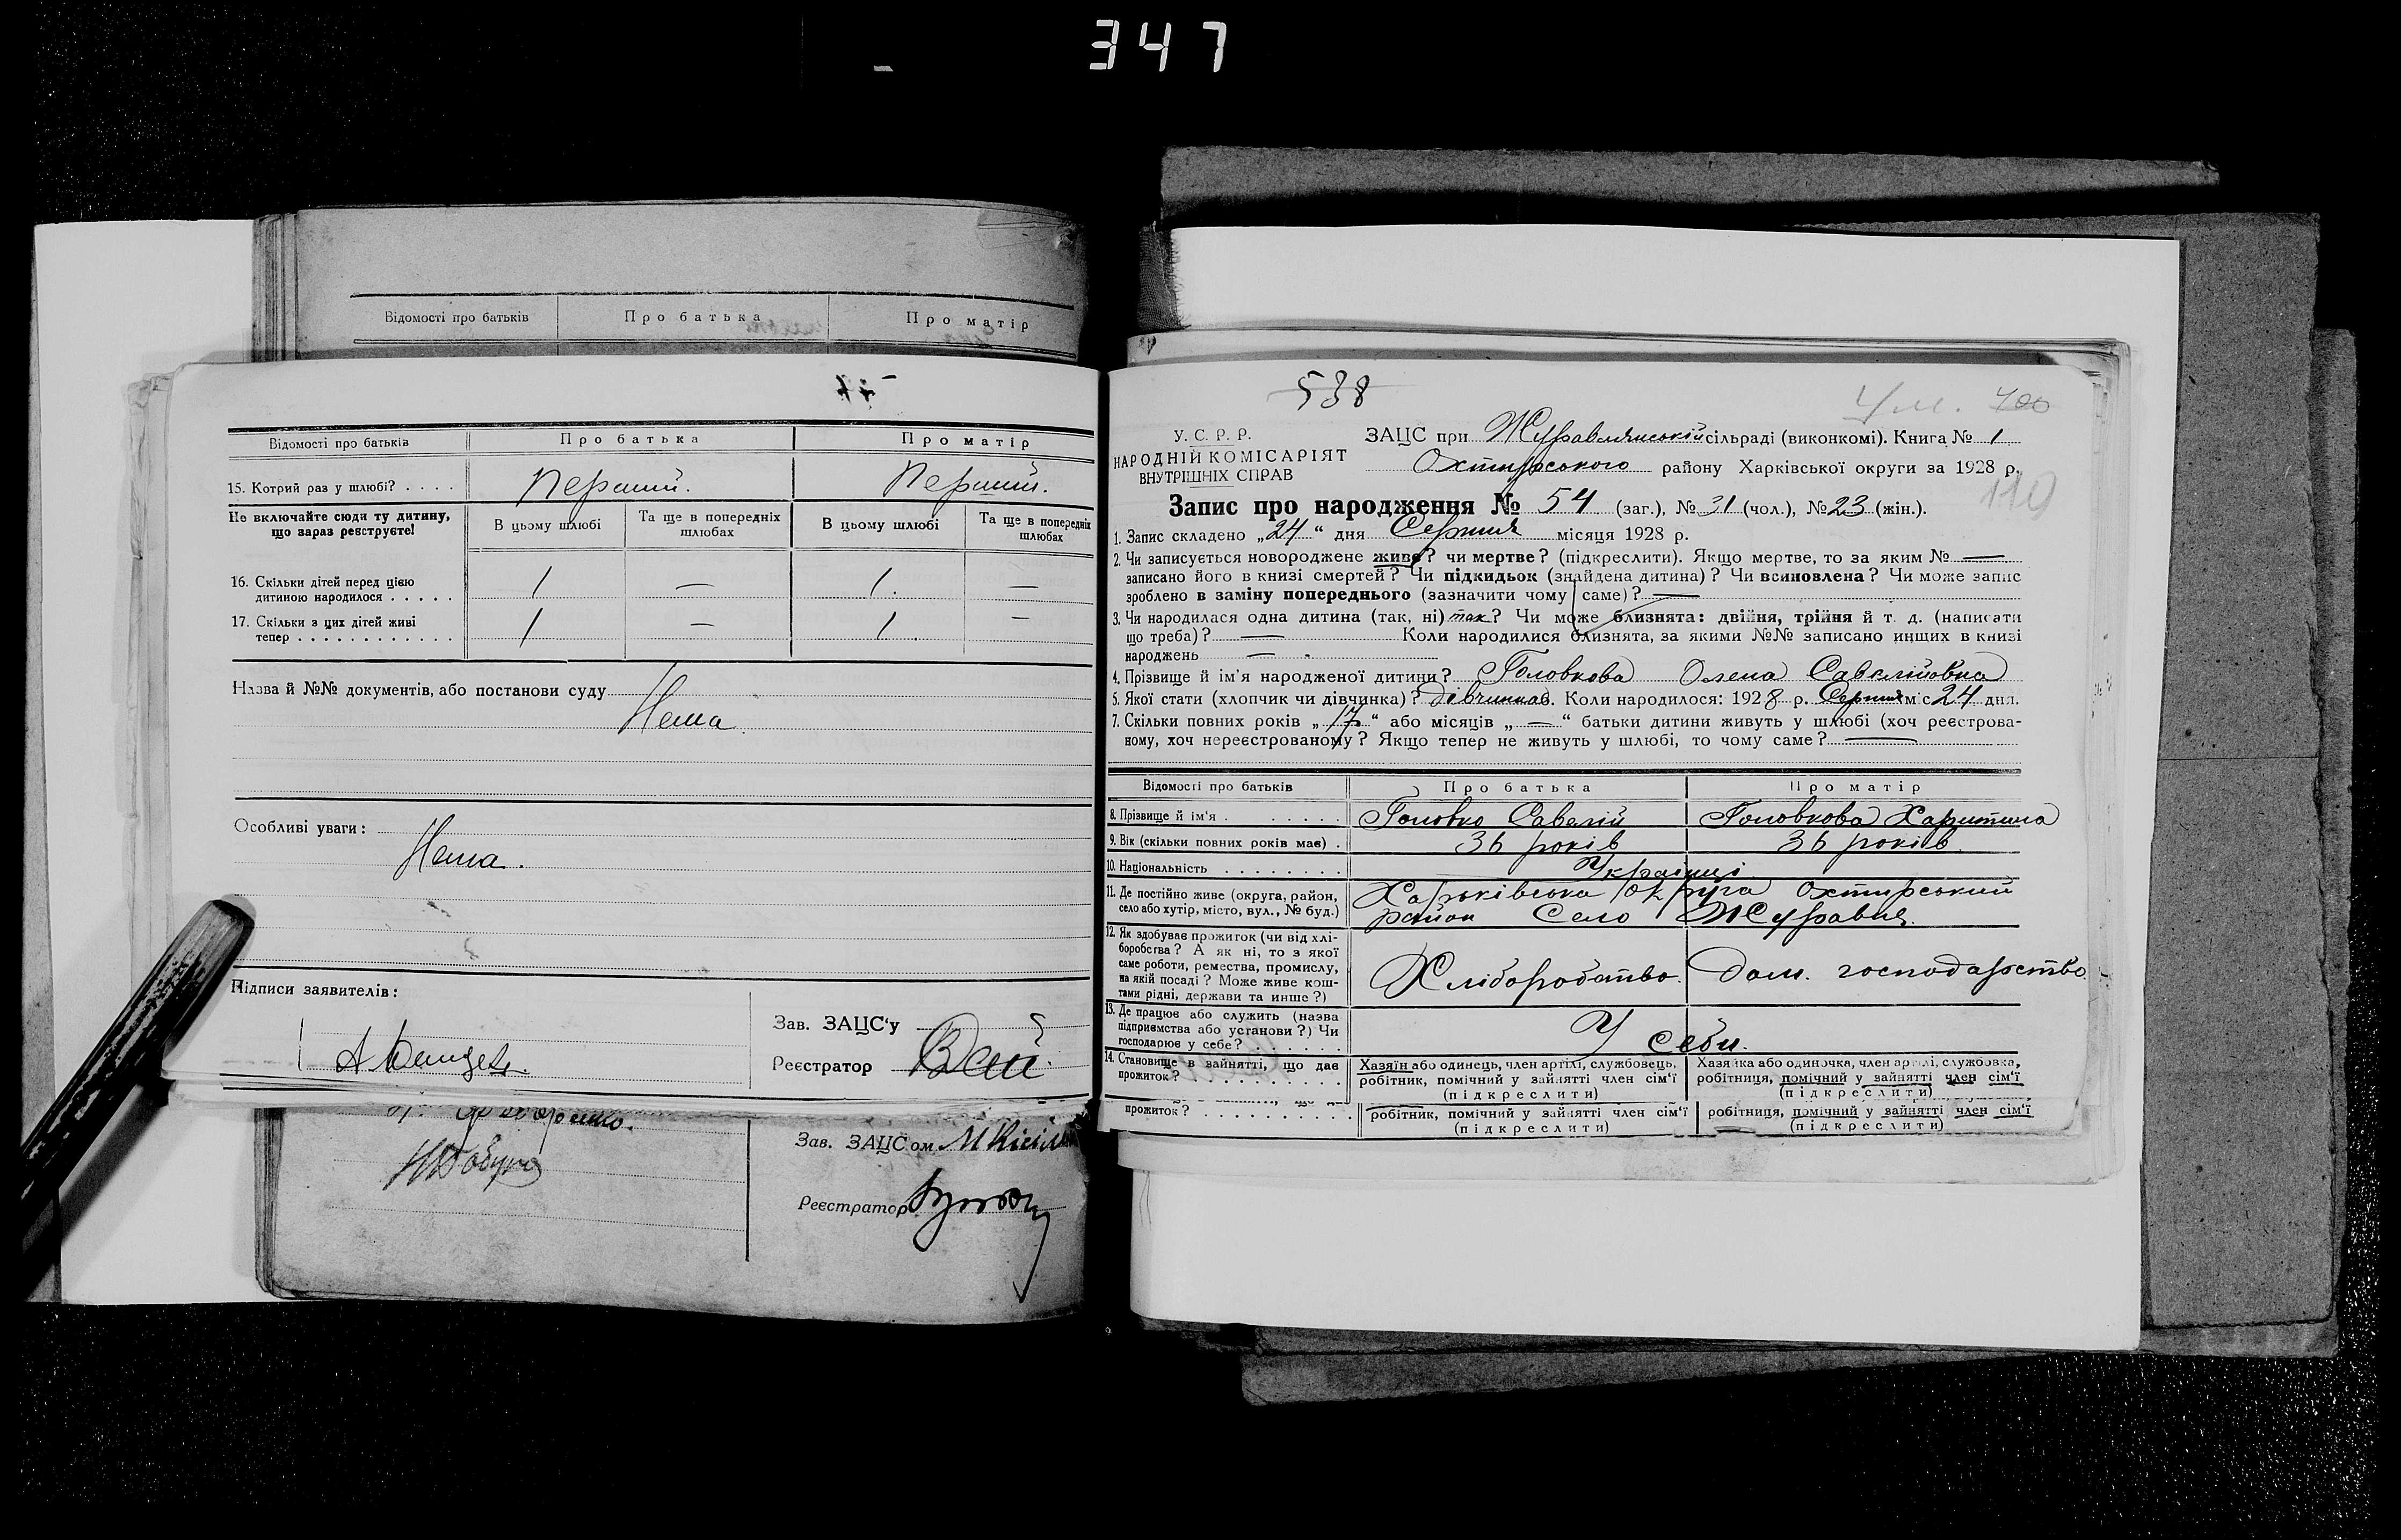 347
Відомості про батьків Про батька Про матір
Відомості про батьків Про батька Про матір
15. Котрий раз у шлюбі? . . . . Перший. Перший.
Не включайте сюди ту дитину, що зараз реєструєте!
В цьому шлюбі Та ще в попередніх шлюбах В цьому шлюбі Та ще в попередніх шлюбах
16. Скільки дітей перед цією
дитиною народилося . . . . . 1 — 1. —
17. Скільки з цих дітей живі
тепер . . . . . . . . . . . . 1 — 1 —
Назва й №№ документів, або постанови суду
Нема
Особливі уваги:
Нема.
Підписи заявителів:
Зав. ЗАЦС'у
Реєстратор
Зав. ЗАЦСом
Реєстратор
538
Ум. 400
У. С. Р. Р.
НАРОДНІЙ КОМІСАРІЯТ
ВНУТРІШНІХ СПРАВ
ЗАЦС при Журавлянській сільраді (виконкомі). Книга № 1
Охтирського району Харківської округи за 1928 р.
110
Запис про народження № 54 (заг.), № 31 (чол.), № 23 (жін.).
1. Запис складено „24“ дня Серпня місяця 1928 р.
2. Чи записується новороджене живе? чи мертве? (підкреслити). Якщо мертве, то за яким № —
записано його в книзі смертей? Чи підкидьок (знайдена дитина)? Чи всиновлена? Чи може запис
зроблено в заміну попереднього (зазначити чому саме)? —
3. Чи народилася одна дитина (так, ні) так? Чи може близнята: двійня, трійня й т. д. (написати
що треба)? — Коли народилися близнята, за якими №№ записано инщих в книзі
народжень —
4. Прізвище й ім'я народженої дитини? Головкова Олена Савелійовна
5. Якої стати (хлопчик чи дівчинка)? дівчинка 6. Коли народилося: 1928 р. Серпня міс 24 дня.
7. Скільки повних років „17“ або місяців „—“ батьки дитини живуть у шлюбі (хоч реєстрова-
ному, хоч нереєстрованому? Якщо тепер не живуть у шлюбі, то чому саме? —
Відомості про батьків Про батька Про матір
8. Прізвище й ім'я . . . . . . Головко Савелій Головкова Харитина
9. Вік (скільки повних років має) . 36 років 36 років
10. Національність . . . . . . . . Українці
11. Де постійно живе (округа, район,
село або хутір, місто, вул., № буд.)
Харьківська округа Охтирський
район Село Журавне.
12. Як здобуває прожиток (чи від хлі-
боробства? А як ні, то з якої
саме роботи, ремества, промислу,
на якій посаді? Може живе кош-
тами рідні, держави та инше?)
Хліборобство. Дом. господарство
13. Де працює або служить (назва
підприємства або установи?) Чи
господарює у себе? . . . . . .
У себи.
14. Становище в зайнятті, що дає
прожиток? . . . . . . . . .
Хазяїн або одинець, член артілі, службовець,
робітник, помічний у зайнятті член сім'ї
(підкреслити)
Хазяйка або одиночка, член артілі, службовка,
робітниця, помічний у зайнятті член сім'ї
(підкреслити)
прожиток? . . . . . . . . . . робітник, помічний у зайнятті член сім'ї робітниця, помічний у зайнятті член сім'ї
(підкреслити) (підкреслити)